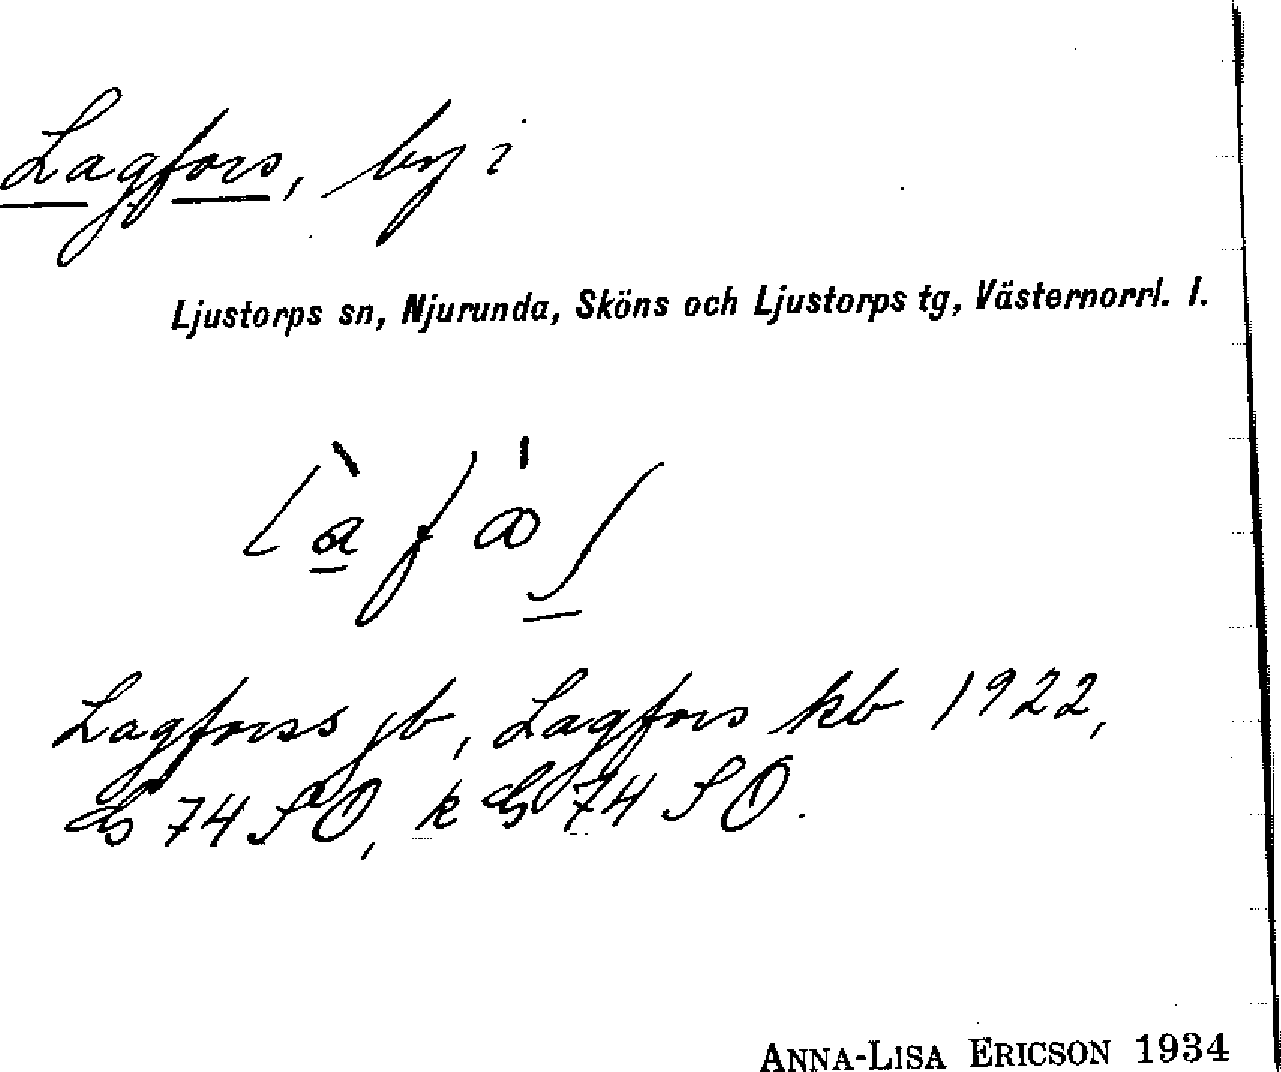 Lagfors, by i
Ljustorps sn, Njurunda, Sköns och Ljustorps tg, Västernorrl. l.
Lagforss jb, Lagfors kb 1922,
74 SO, k 74 SO.
ANNA-LISA ERICSON 1934